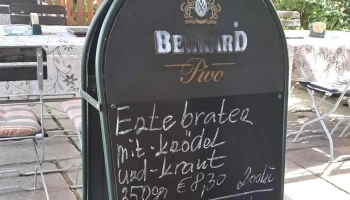 BERNARD
Pivo
Entebraten
mit-knödel
und-kraut
350gr €8,30 200Kč